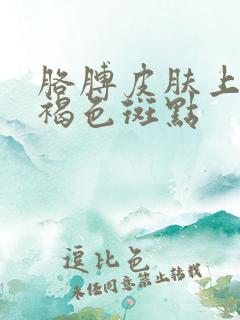 胳膊皮肤上
褐色斑點
逗比色
未经同意禁止转载